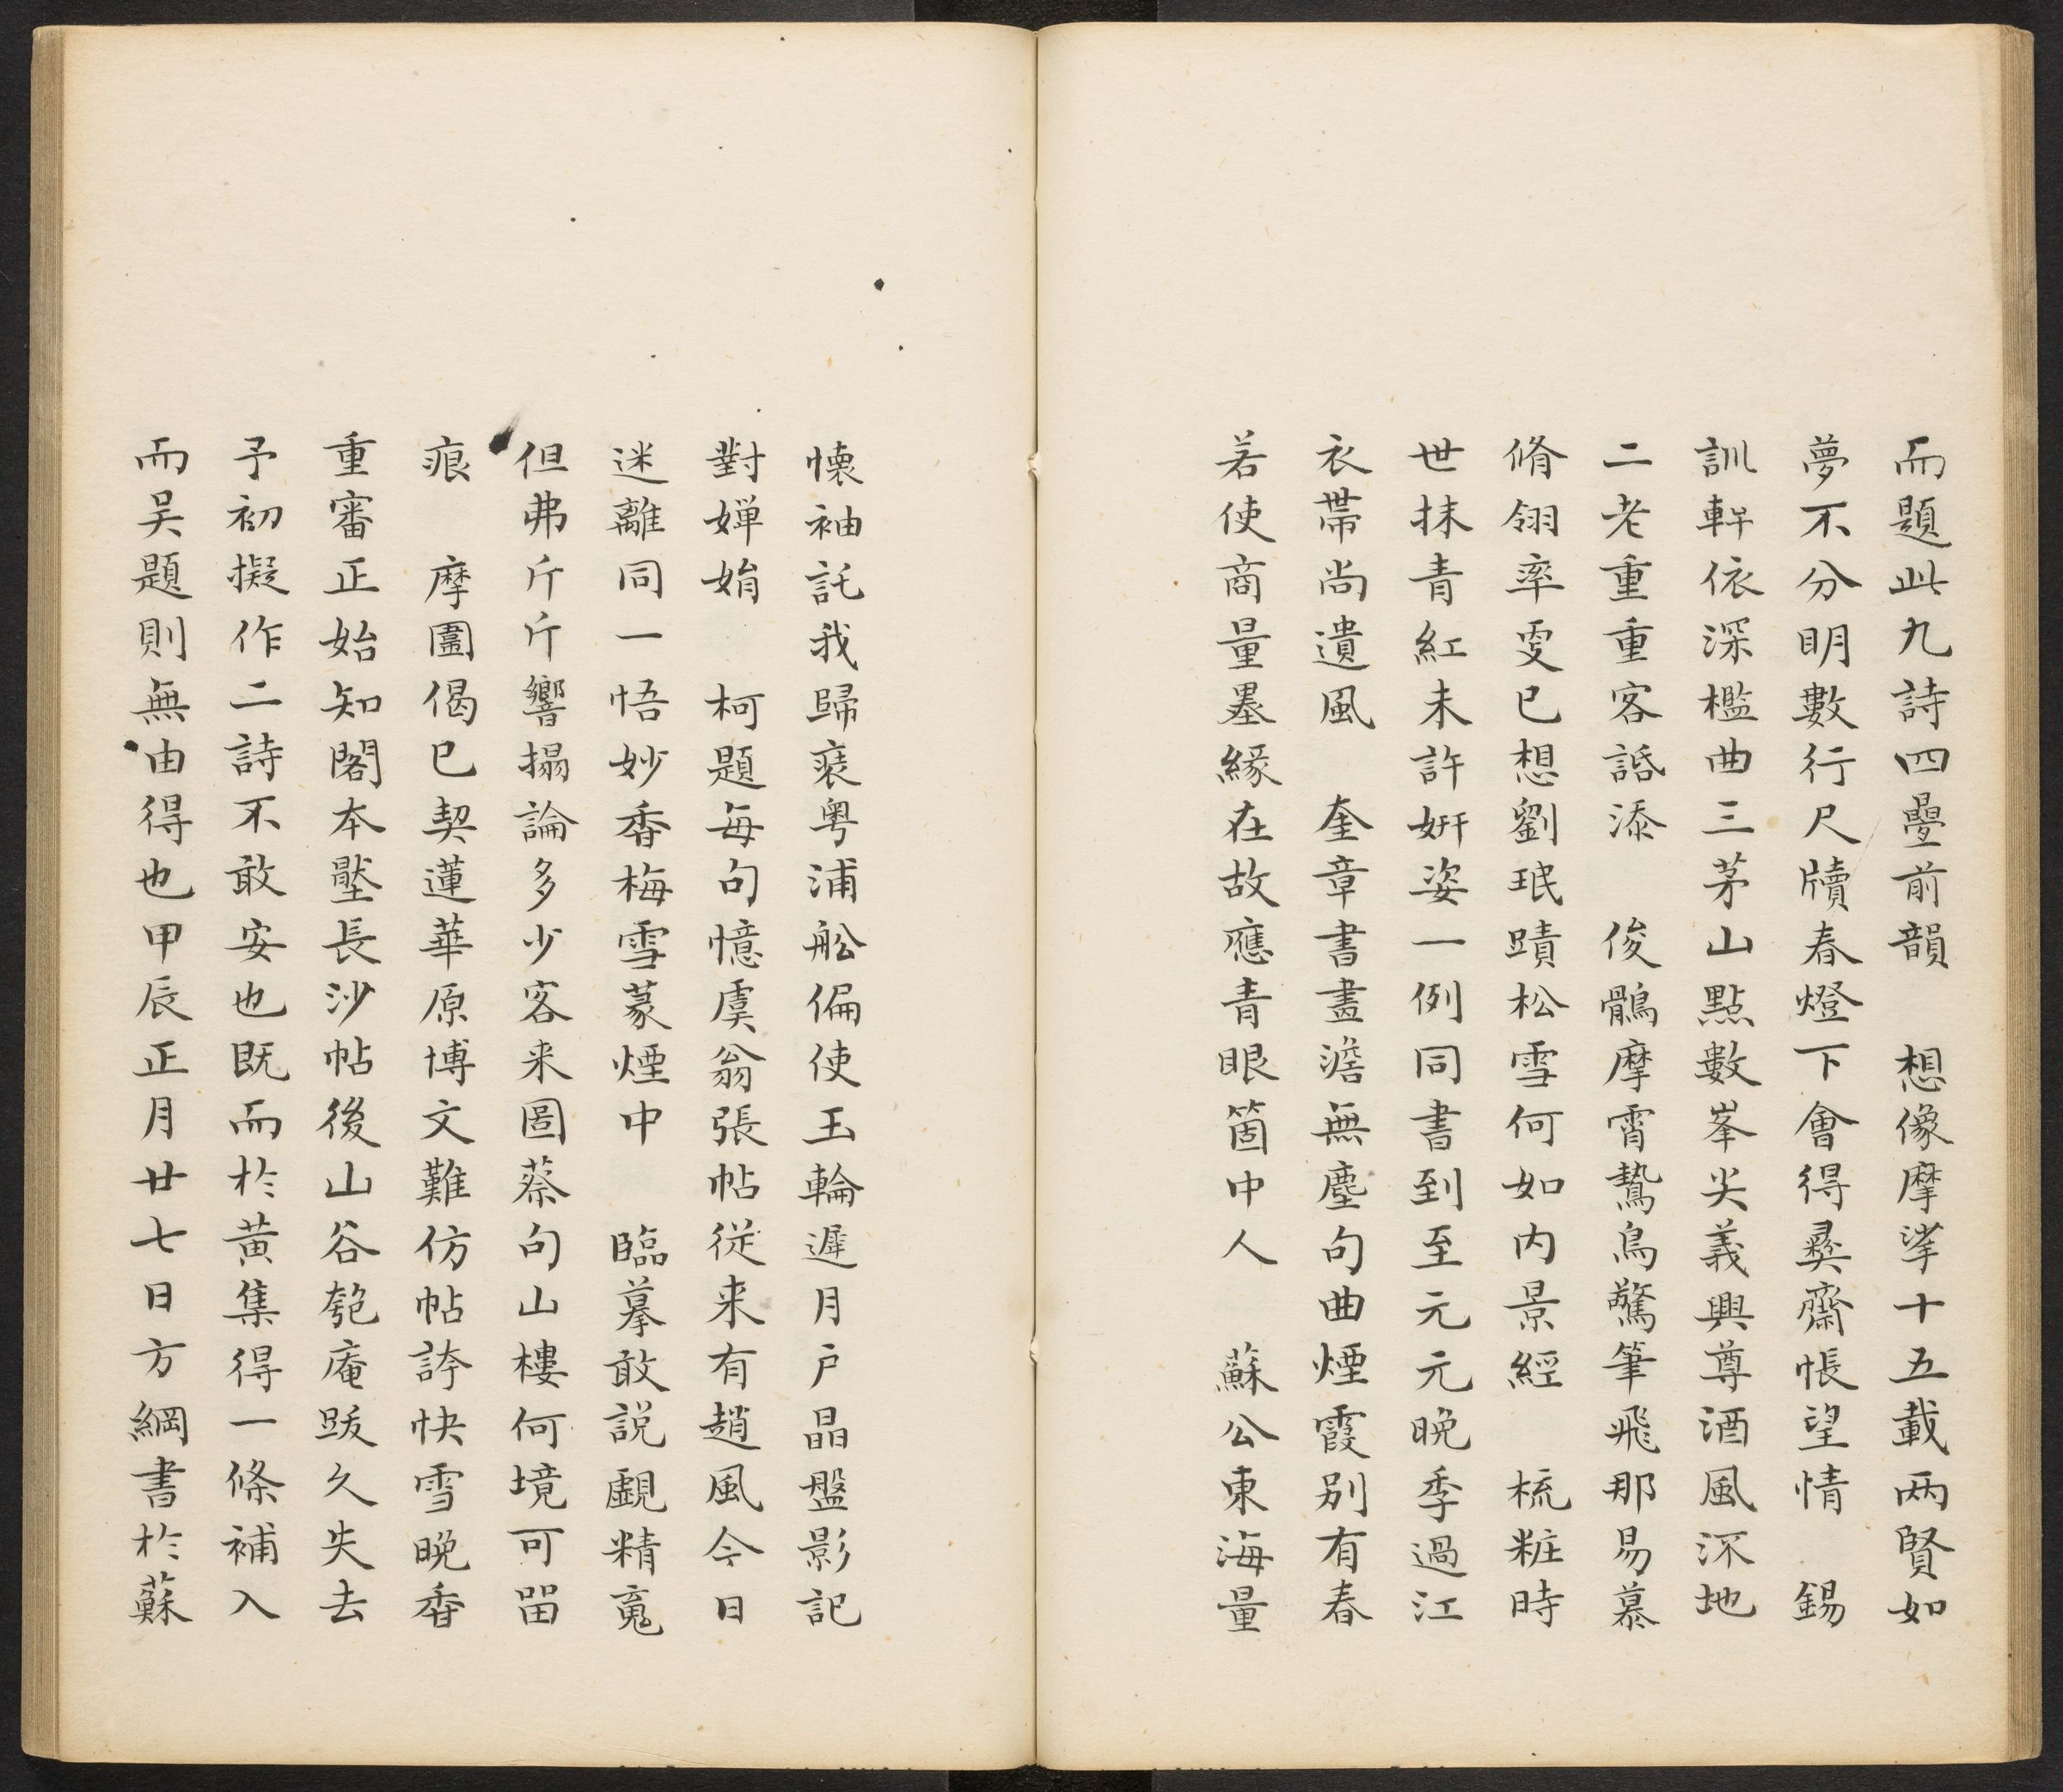 而題此九詩四疊前韻　想像摩挲十五載两賢如
夢不分明數行尺牘春燈下會得彝齋悵望情　錫
訓軒依深檻曲三茅山點數峯尖義興尊酒風流地
二老重重客話添　俊鶻摩霄鷙鳥驚筆飛那易慕
脩翎率更已想劉珉蹟松雪何如内景經　梳粧時
世抹青紅未許妍姿一例同書到至元元晩季過江
衣帶尚遺風　奎章書畫澹無塵句曲煙霞别有春
若使商量墨緣在故應青眼箇中人　蘇公東海量
懐袖託我歸裝粤浦舩偏使玉輪遲月户晶盤影記
對嬋娟　柯題每句憶虞翁張帖從来有趙風今日
迷離同一悟妙香梅雪篆煙中　臨摹敢説覰精䰟
但弗斤斤響搨論多少客来圖蔡句山樓何境可畱
痕　摩圍偈已契蓮華原博文難仿帖誇快雪晩香
重審正始知閣本壓長沙帖後山谷匏庵跋久失去
予初擬作二詩不敢安也既而於黄集得一條補入
而吴題則無由得也甲辰正月廿七日方綱書於蘇